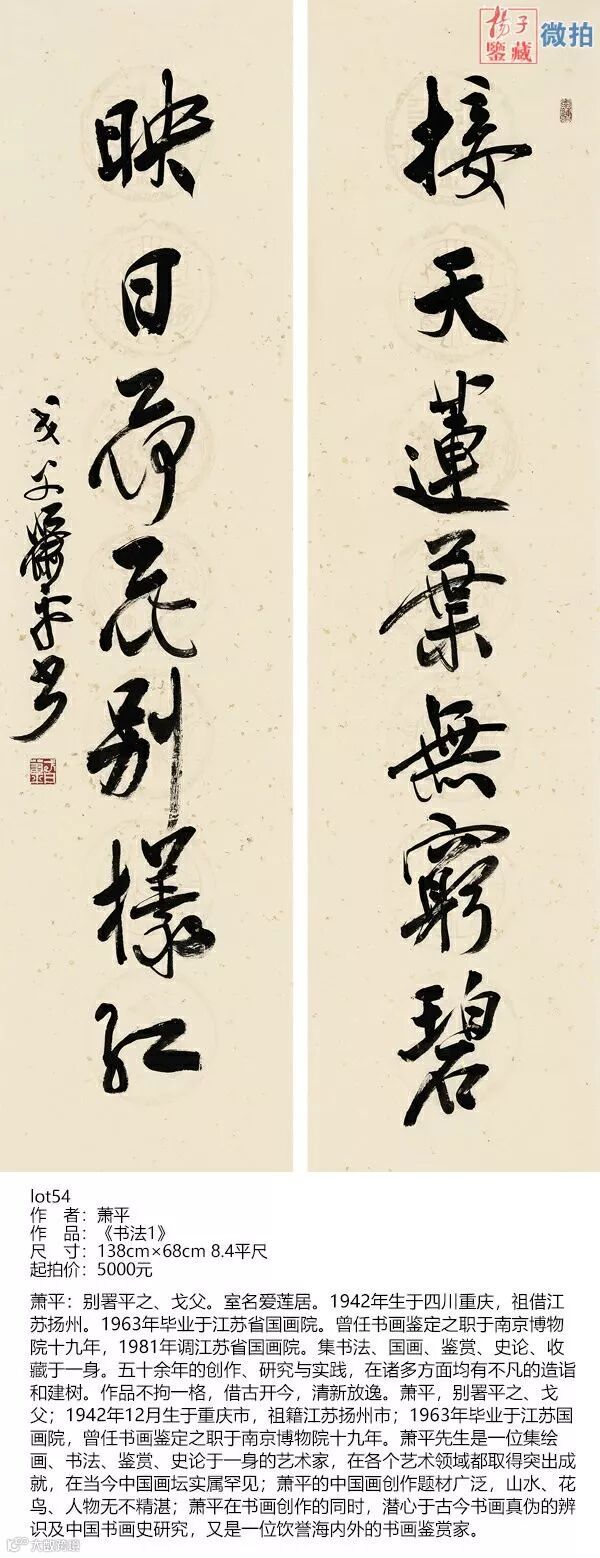 杨子
鉴藏
微拍
接天蓮葉無窮碧
映日荷花别樣红
戈父萧平书
lot54
作 者：萧平
作 品：《书法1》
尺 寸：138cm×68cm 8.4平尺
起拍价：5000元
萧平：别署平之、戈父。室名爱莲居。1942年生于四川重庆，祖借江
苏扬州。1963年毕业于江苏省国画院。曾任书画鉴定之职于南京博物
院十九年，1981年调江苏省国画院。集书法、国画、鉴赏、史论、收
藏于一身。五十余年的创作、研究与实践，在诸多方面均有不凡的造诣
和建树。作品不拘一格，借古开今，清新放逸。萧平，别署平之、戈
父；1942年12月生于重庆市，祖籍江苏扬州市；1963年毕业于江苏国
画院，曾任书画鉴定之职于南京博物院十九年。萧平先生是一位集绘
画、书法、鉴赏、史论于一身的艺术家，在各个艺术领域都取得突出成
就，在当今中国画坛实属罕见；萧平的中国画创作题材广泛，山水、花
鸟、人物无不精湛；萧平在书画创作的同时，潜心于古今书画真伪的辨
识及中国书画史研究，又是一位饮誉海内外的书画鉴赏家。